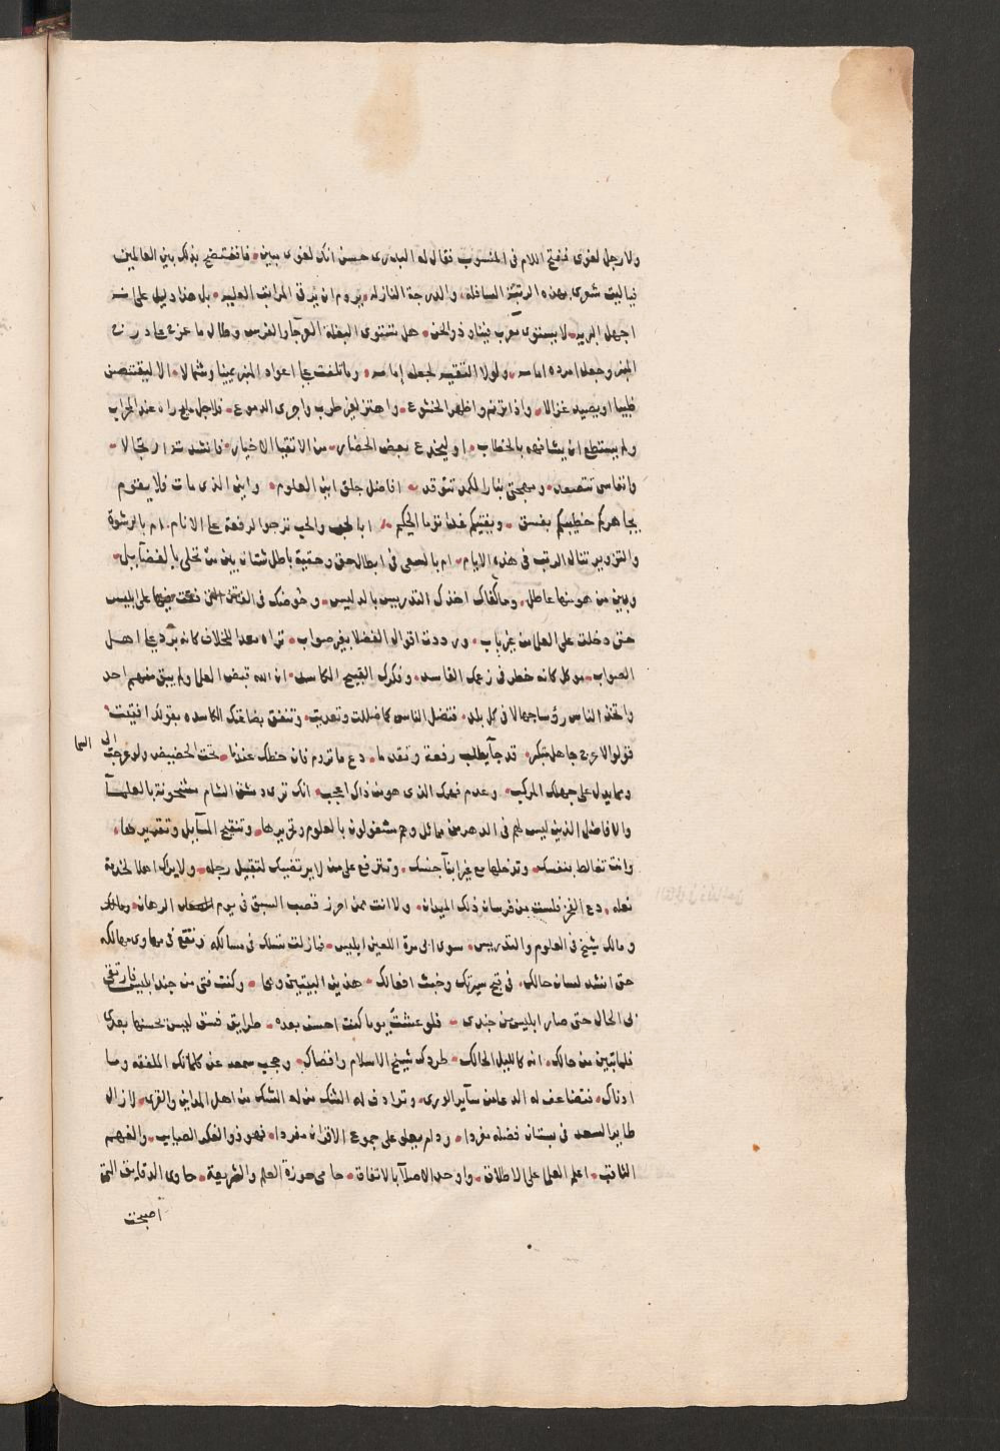 ولا رجل لغوى ففتح اللام فى المنسوب فقال له البدرى حسن انك لغوى مبين فافتضح بذلك بين العالمين
فياليت شعرى بهذه الرتبة السافله والدرجة النازله يروم ان يرقى المراتب العليه بل هذا دليل على انه
اجهل البريه لا يستوى معرب فينا وذو لحن هل تستوى البغلة العرجا والفرس وطال ما عزم على
المنبر وجعل امرده امامه ولولا التقيه لجعله إمامه وما تلفت على اعواد المنبر يمينا وشمالا الا ليقتنص
ظبيا او يصيد غزالا واذا ترنم واظهر الخشوع واهتز لغير طرب واجرى الدموع فلاجل مليح راه عند المحراب
ولم يستطع ان يشافهه بالخطاب او ليخدع بعض الحضار من الاتقيا الاخيار فانشد ارتجالا
وانفاسى تتصعد ومهجتى بنار الكمد تتوقد افاضل جلق اين العلوم واين الذى مات فلا يقوم
يجاهركم خطيبكم بفسق ويفتيكم غدا توما الحكيم ابالجهل والحب ترجوا لرفعة على الانام ام بالرشوة
والتزوير تنال الرتب فى هذه الايام ام بالسعى فى ابطال حق وحقية باطل شتان بين من تحلى بالفضايل
وبين من هو منها عاطل وما كفاك اخذك التدريس بالدليس وخوضك فى الفتن التى على ابليس
حتى دخلت على العلما من غير باب ورددت اقوال الفضلا بغير صواب تراه معدا للخلاف كانه يرد على اهل
الصواب موكل كانه خطر فى زعمك الفاسد وفكرك القبيح الكاسد ان الله قبض العلما ولم يبق منهم احد
واتخذ الناس رؤسا جهالا فى كل بلد فتضل الناس كما ضللت وتعديت وتنفق بضاعتك الكاسده بقولك افتيت
قولوا لاعرج جاهل متكبر قد جآ يطلب رفعة وتقدما دع ما تروم فان حظك عندنا تحت الحضيض ولو عرجت الى السما
ومما يدل على جهلك المركب وعدم فهمك الذى هو من ذاك اعجب انك ترى دمشق الشام مشحونة بالعلمآ
والافاضل الذين ليس لهم فى الدهر من مماثل وهم مشغولون بالعلوم وتحريرها وتنقيح المسآيل وتقريرها
وانت تغالط بنفسك وتدخلها مع غير ابنآ جنسك وتترفع على من لا يرتضيك لتقبيل رجله ولا يراك اهلا لخدمة
نعله دع الفخر فلست من فرسان ذلك الميدان ولا انت ممن احرز قصب السبق فى يوم الرهان
ومالك شيخ فى العلوم والتدريس سوى ابى مرة اللعين ابليس فمازلت تسلك فى مسالكه وتقع فى مهاوى مهالكه
حتى انشد لسان حالك فى قبح سيرتك وخبث افعالك هذين البيتين وهما وكنت فتى من جند ابليس فارتقى
بى الحال حتى صار ابليس من جندى فلو عشت يوما كنت احسن بعده طرايق فسق ليس يحسنها بعدى
فلما تبين من حالك انه كالليل الحالك طردك شيخ الاسلام واقصاك وحجب سمعه عن كلماتك الملفقه وما
ادناك فتضاعف له الدعا من سآير الورى وترادف له الشكر من اهل المداين والقرى لازال
طاير السعد فى بستان فضله مغردا ودام يعلو على جموع الاقران مفردا فهو ذو الفكر الصايب والفهم
الثاقب اعلم العلما على الاطلاق واوحد الاجلآ بالاتفاق حامى حوزة العلم والشريعة حاوى الدقايق التى
اصبحت